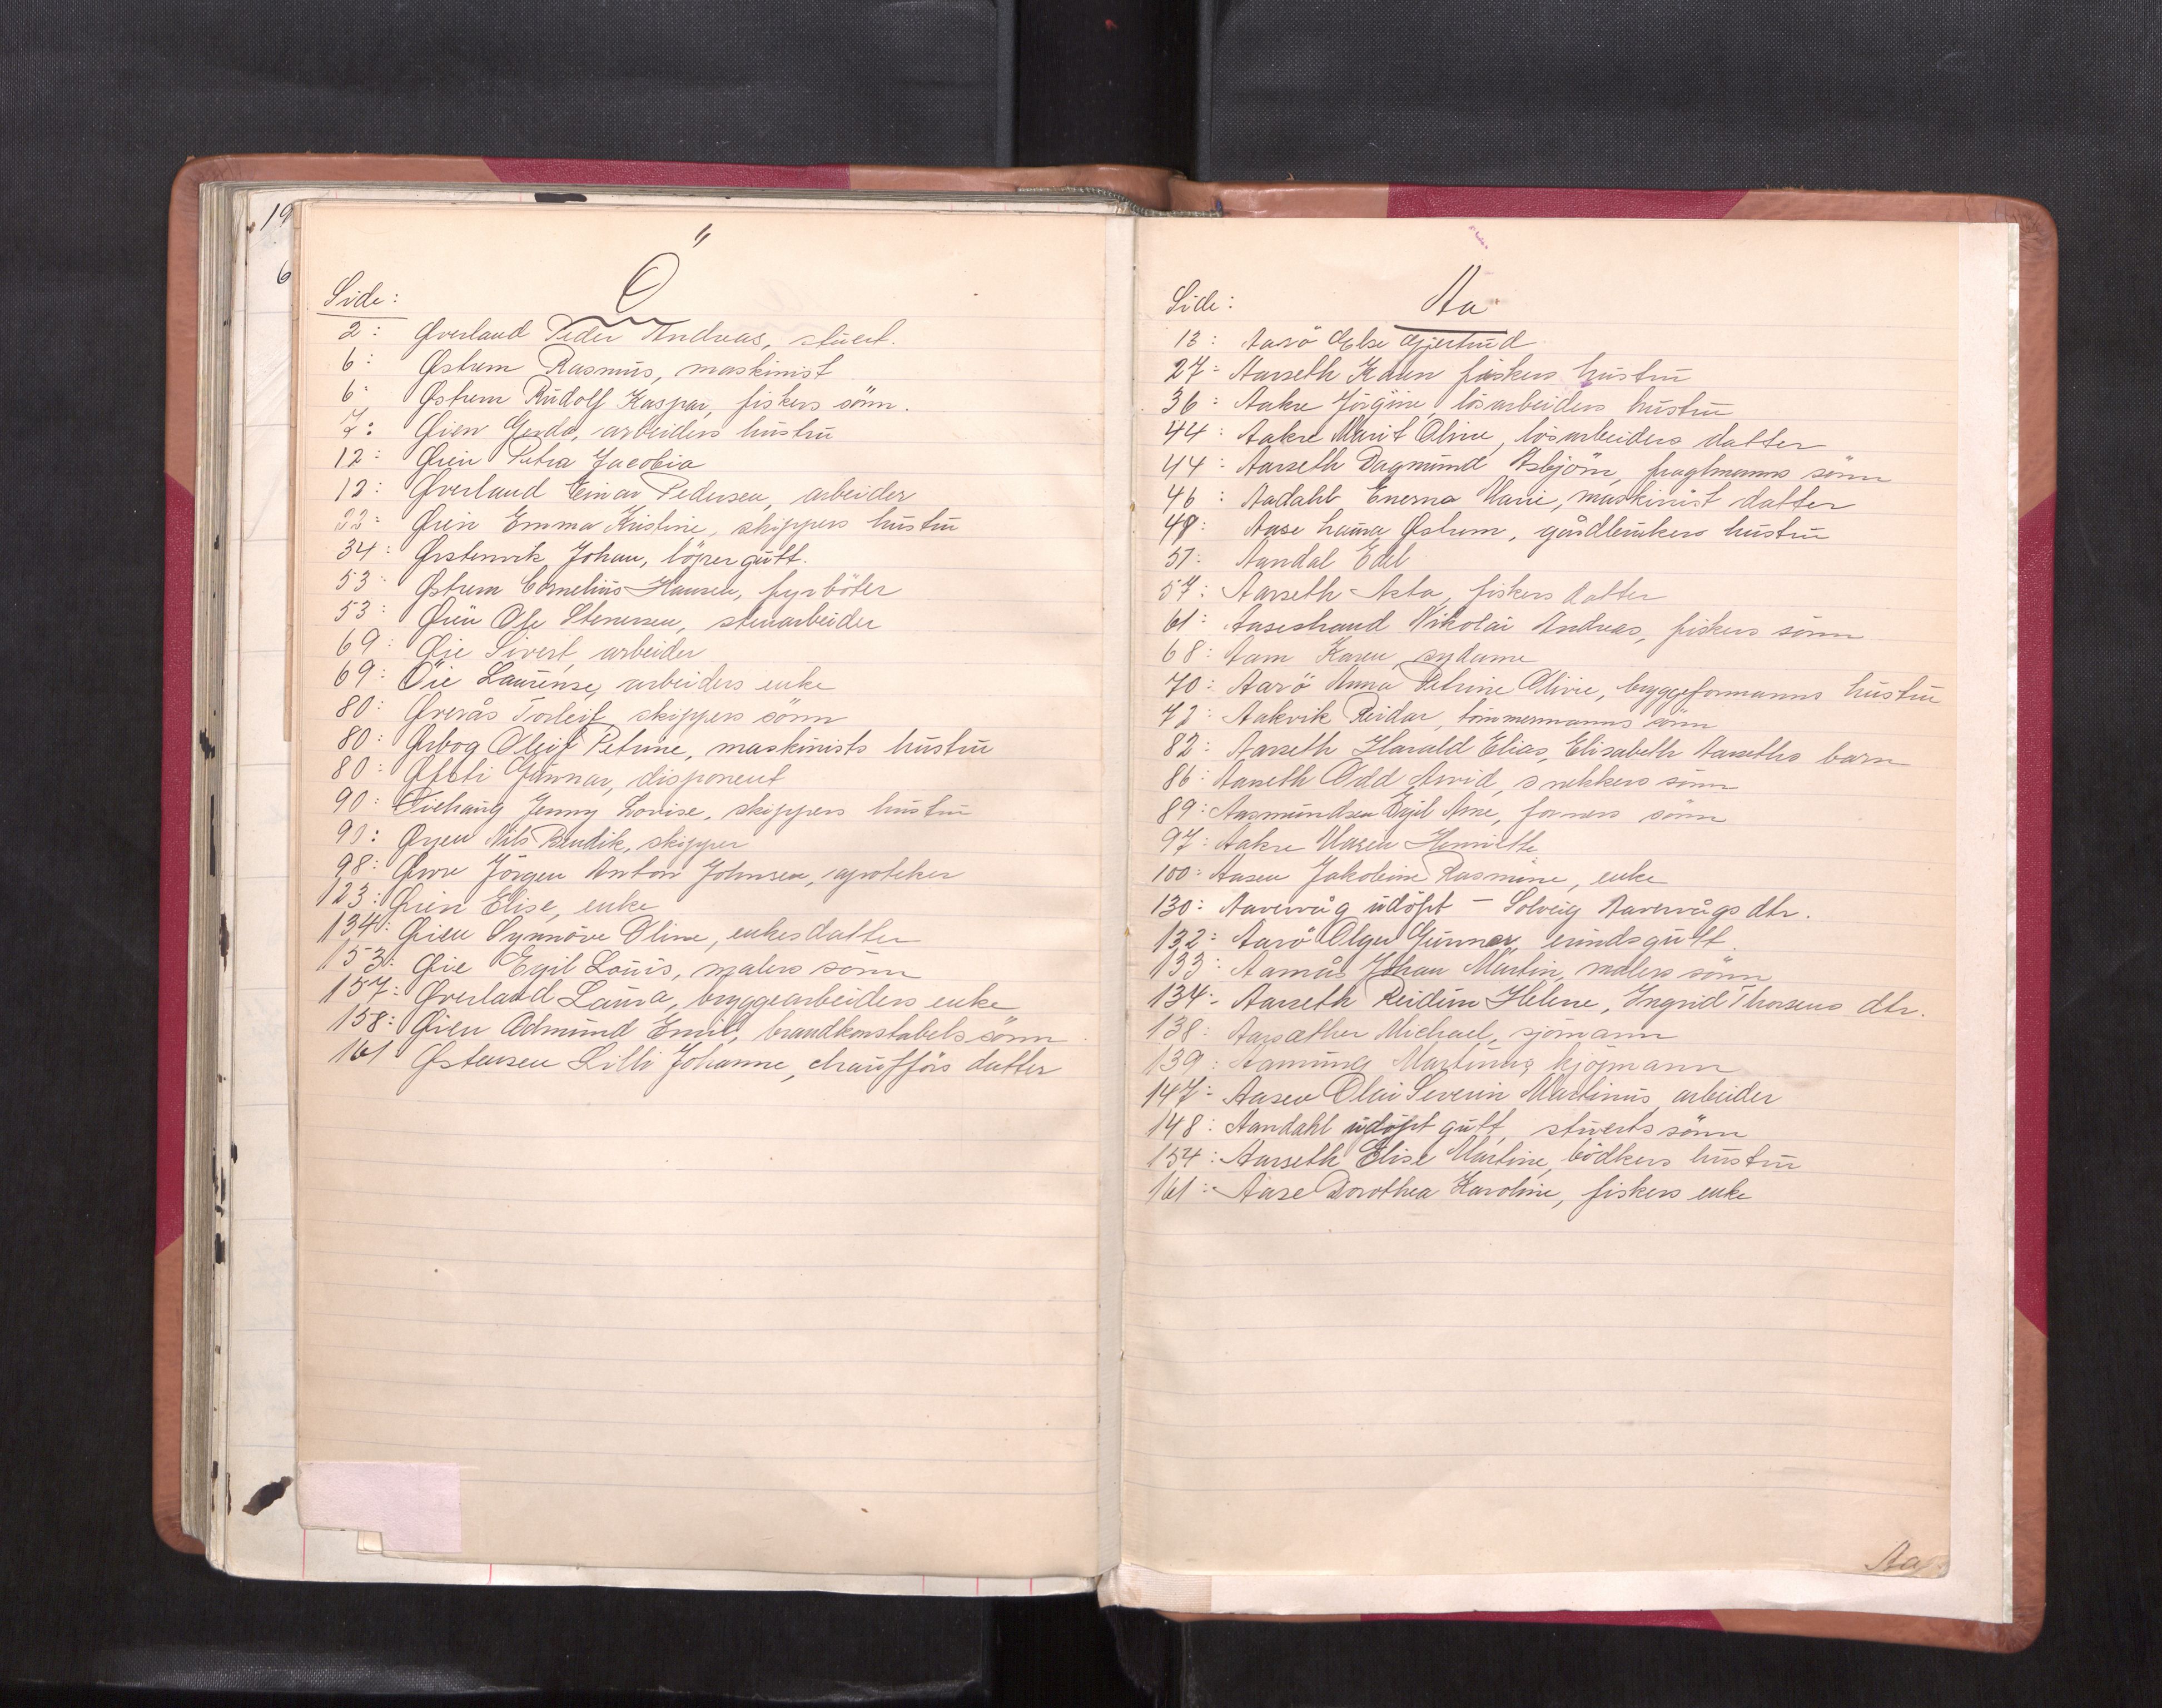 19
6
Ö
Side:
2: Øverland Peder Andreas, stuert.
6: Østrem Rasmus, maskinist
6: Østrem Rudolf Kaspar, fiskers sönn.
7: Øien Gerda, arbeiders hustru
12: Øien Petra Jacobia
12: Øverland Einar Pedersen, arbeider
22: Øien Emma Kristine, skippers hustru
34: Ørstenvik Johan, löpergutt.
53: Østrem Cornelius Hansen, fyrböter
53: Øien Ole Stenersen, stenarbeider
69: Øie Sivert, arbeider
69: Öie Laurense, arbeiders enke
80: Øverås Torleif, skippers sönn
80: Ørbog Oleif Petrine, maskinists hustru
80: Øfsti Gunnar, disponent
90: Øiehaug Jenny Lovise, skippers hustru
90: Øyen Nils Bendik, skipper
98: Øwre Jörgen Anton Johnsen, apoteker
123: Øien Elise, enke
134: Øien Synnöve Oline, enkes datter
153: Øie Egil Louis, malers sönn
157: Øverland Laura, bryggearbeiders enke
158: Øien Odmund Emil, brandkonstabels sönn
161 Østensen Lilli Johanne, chauffförs datter
Side: Aa
13: Aarö Else Gjertrud
27: Aarseth Karen fiskers hustru
36: Aakre Jörgine, lösarbeiders hustru
44: Aakre Marit Oline, lösarbeiders datter
44: Aarseth Dagmund Asbjörn, fragtmanns sönn
46: Aadahl Enerna Marie, maskinist datter
48: Aase Laura Østrem, gårdbrukers hustru
51: Aandal Edel
57: Aarseth Asta, fiskers datter
61: Aasestrand Nikolai Andreas, fiskers sönn
68: Aam Karen, sydame
70: Aarö Anna Petrine Olivie, bryggeformanns hustru
72: Aakvik Reidar, tömmermanns sönn
82: Aarseth Harald Elias, Elisabeth Aarseths barn
86: Aarseth Odd Arvid, snekkers sönn
89: Aasmundsen Egil Arne, formers sönn
97: Aakre Maren Henriette
100: Aasen Jakobine Rasmine, enke
130: Aavervåg udöpt – Solveig Aavervågs dtr.
132: Aarö Olger Gunnar, erindsgutt.
133: Aamås Johan Martin, malers sönn
134: Aarseth Reidun Helene, Ingrid Thorsens dtr.
138: Aarsæther Michael, sjömann
139: Aanning Martinus kjöpmann
147: Aasen Olai Severin Martinus, arbeider
148: Aandahl udöpt gutt, stuerts sönn
154: Aarseth Elise Martine, bödkers hustru
161: Aase Dorothea Karoline, fiskers enke
Aa